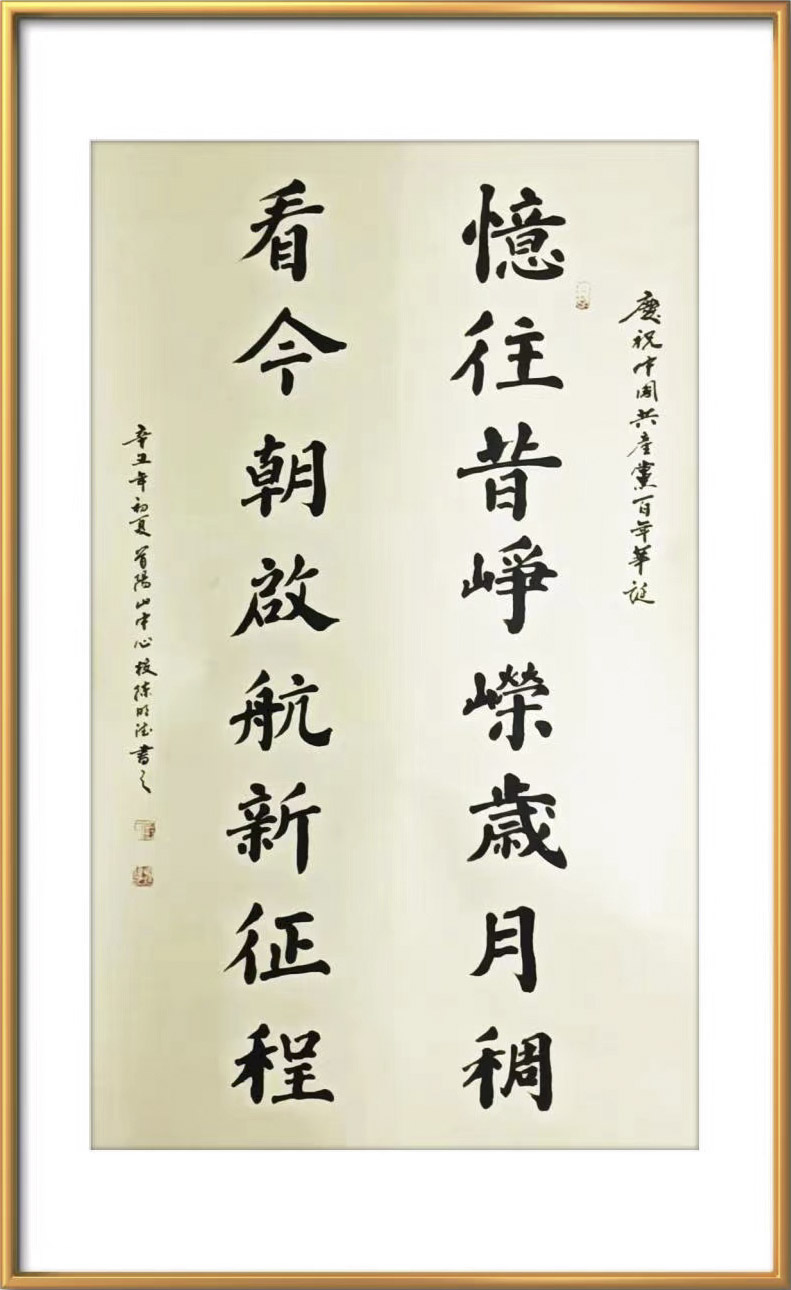 慶祝中國共產黨百年華誕
憶往昔崢嶸歲月稠
看今朝啟航新征程
辛丑年初夏首陽山中心校陈明法書之